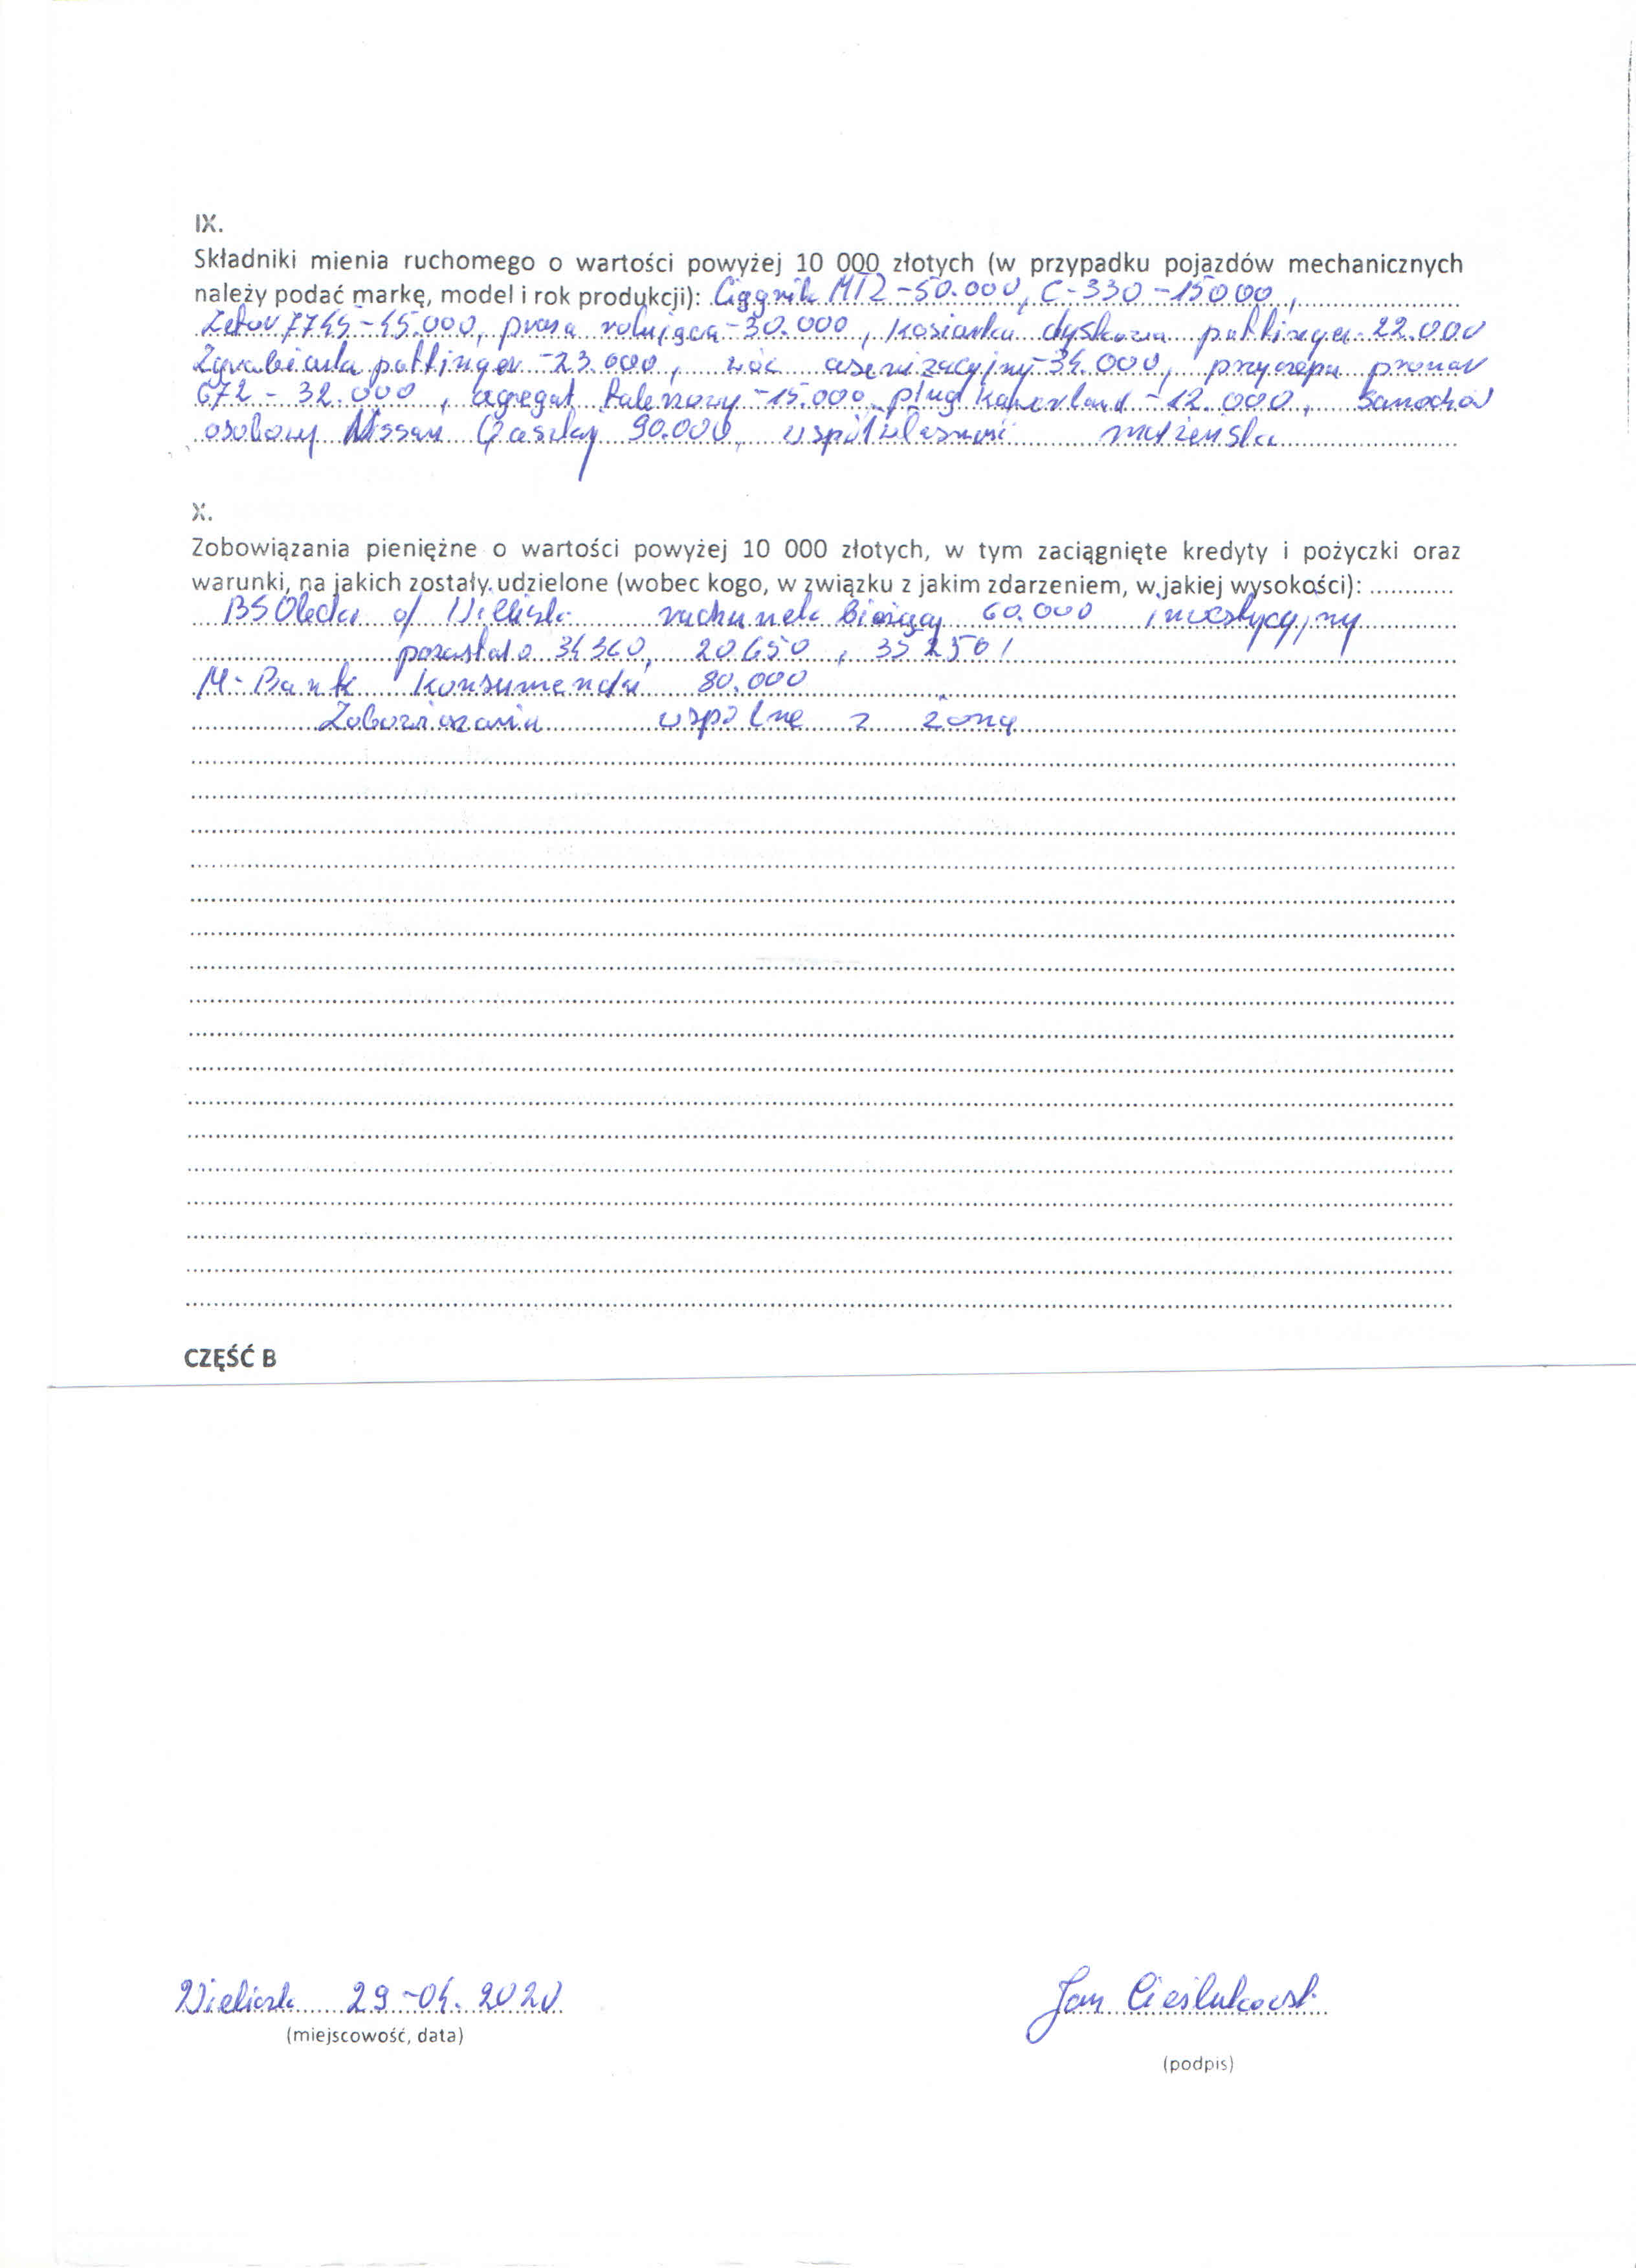 IX.
Składniki mienia ruchomego o wartości powyżej 10 000 złotych (w przypadku pojazdów mechanicznych
należy podać markę, model i rok produkcji): Ciągnik MTZ - 50.000, C-330 - 15000,
Zetor 7745 - 45.000, prasa rolująca - 30.000, kosiarka dyskowa pottinger - 22.000
Zgrabiarka pottinger - 23.000, wóz asenizacyjny - 34.000, przyczepa pronar
672 - 32.000, agregat talerzowy - 15.000, pług - 12.000, samochód
osobowy Nissan 90.000, współwłasność małżeńska
X.
Zobowiązania pieniężne o wartości powyżej 10 000 złotych, w tym zaciągnięte kredyty i pożyczki oraz
warunki, na jakich zostały udzielone (wobec kogo, w związku z jakim zdarzeniem, w jakiej wysokości):
BS Olecko o/ Wieliczki rachunek bieżący 60.000 inwestycyjny
pozostało 34360, 20650, 35250
M-Bank 80.000
Zobowiązania wspólne z żoną
CZĘŚĆ B
Wieliczki 29-04.2020
(miejscowość, data)
Jan Cieślukowski
(podpis)